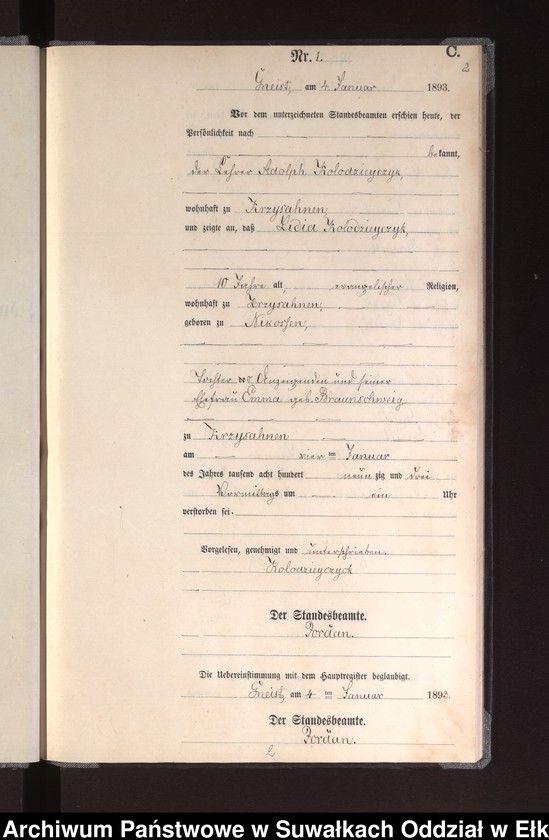 C.
2
Nr. 1.
Gneist, am 4 Januar 1893.
Vor dem unterzeichneten Standesbeamten erschien heute, der
Persönlichkeit nach
bekannt,
der Lehrer Adolph Kolodzieyczyk,
wohnhaft zu Krzysahnen
und zeigte an, daß Lidia Kolodzieyczyk,
10 Jahre alt, evangelischer Religion,
wohnhaft zu Krzysahnen,
geboren zu Nikossen,
Tochter des Anzeigenden und seiner
Ehefrau Emma geb. Braunschweig
zu Krzysahnen
am vier ten Januar
des Jahres tausend acht hundert neun zig und drei
Vormittags um ein Uhr
verstorben sei.
Vorgelesen, genehmigt und unterschrieben.
Kolodzieyczyk
Der Standesbeamte.
Jordan.
Die Uebereinstimmung mit dem Hauptregister beglaubigt.
Gneist, am 4 ten Januar 1893.
Der Standesbeamte.
Jordan.
2
Archiwum Państwowe w Suwałkach Oddział w Ełk